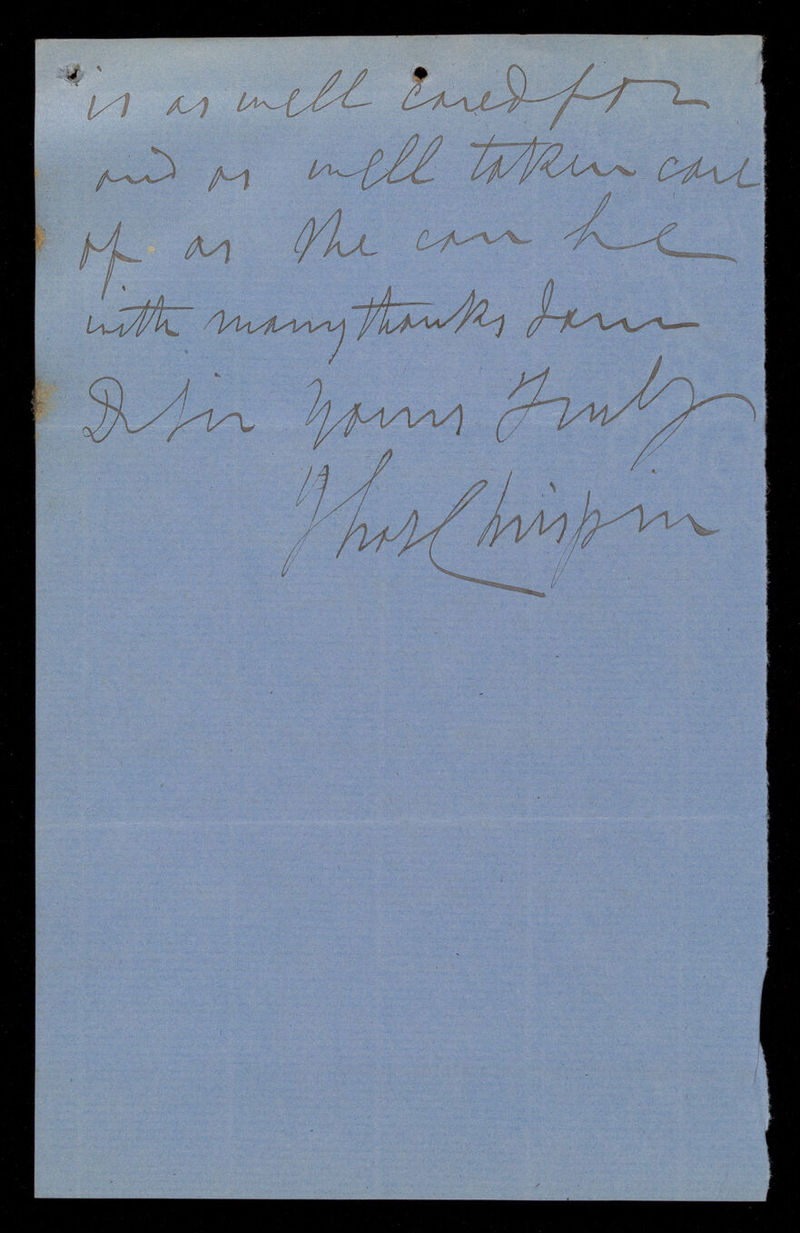 is as well cared for
and as well taken care
of as she can be
with many thanks I am
D Sir Yours Truly
Thos Chrispin